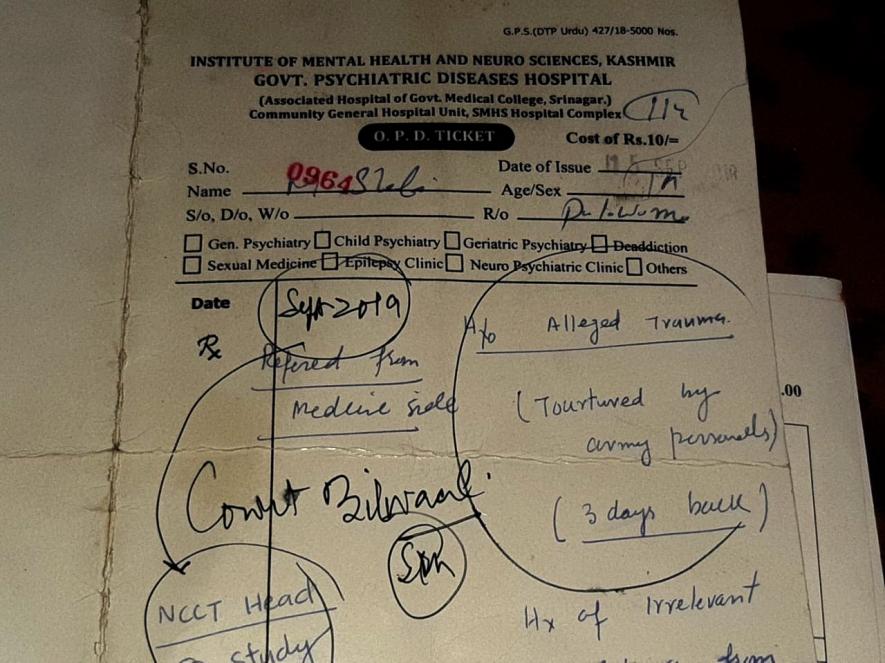 G.P.S.(DTP Urdu) 427/18-5000 Nos.
INSTITUTE OF MENTAL HEALTH AND NEURO SCIENCES, KASHMIR
GOVT. PSYCHIATRIC DISEASES HOSPITAL
(Associated Hospital of Govt. Medical College, Srinagar.)
Community General Hospital Unit, SMHS Hospital Complex
O. P. D. TICKET
Cost of Rs.10/=
S.No. 0964
Date of Issue
Name
Age/Sex
S/o, D/o, W/o
R/o
Gen. Psychiatry Child Psychiatry Geriatric Psychiatry Deaddiction
Sexual Medicine Epilepsy Clinic Neuro Psychiatric Clinic Others
Date Sept 2019
Rx
Refered from
Medcine side
H/o Alleged Trauma.
(Tourtured by
army personells)
(3 days back)
NCCT Head
study
Hx of Irrelevant
from
.00